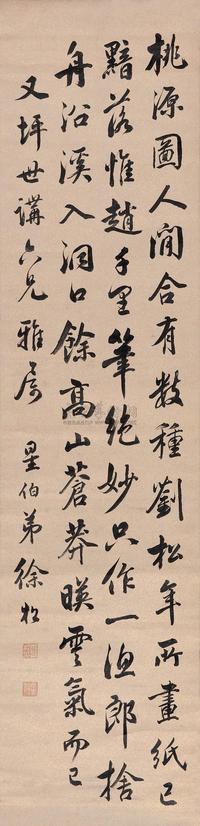 桃源圖人间合有数種劉松年所畫紙已
黯落惟趙千里筆绝妙只作一渔郎捨
舟沿溪入洞口餘高山蒼莽暎雲氣而已
又坪世講六兄雅屬
星伯弟徐松